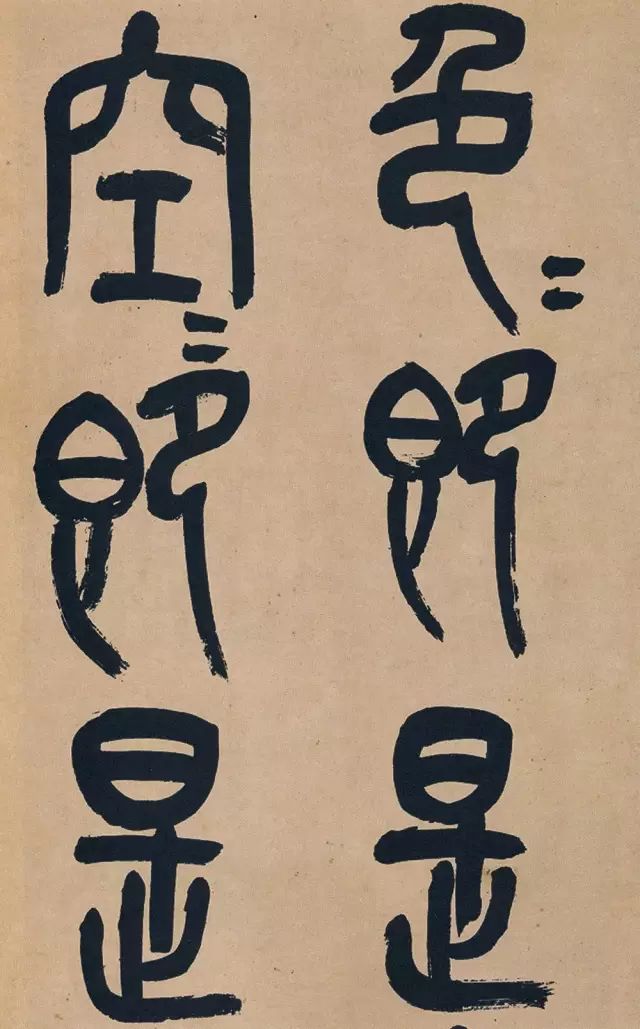 色〻即是
空〻即是